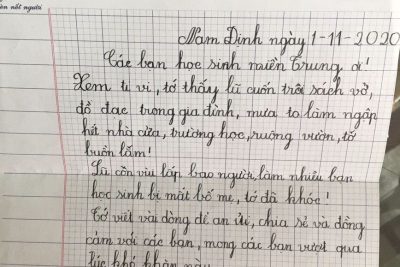 nết người
Nam Định ngày 1-11-2020
Các bạn học sinh miền Trung ơi!
Xem ti vi, tớ thấy lũ cuốn trôi sách vở,
đồ đạc trong gia đình, mưa to làm ngập
hết nhà cửa, trường học, ruộng vườn, tớ
buồn lắm!
Lũ còn vùi lấp bao người, làm nhiều bạn
học sinh bị mất bố mẹ, tớ đã khóc!
Tớ viết vài dòng để an ủi, chia sẻ và đồng
cảm với các bạn, mong các bạn vượt qua
lúc khó khăn này